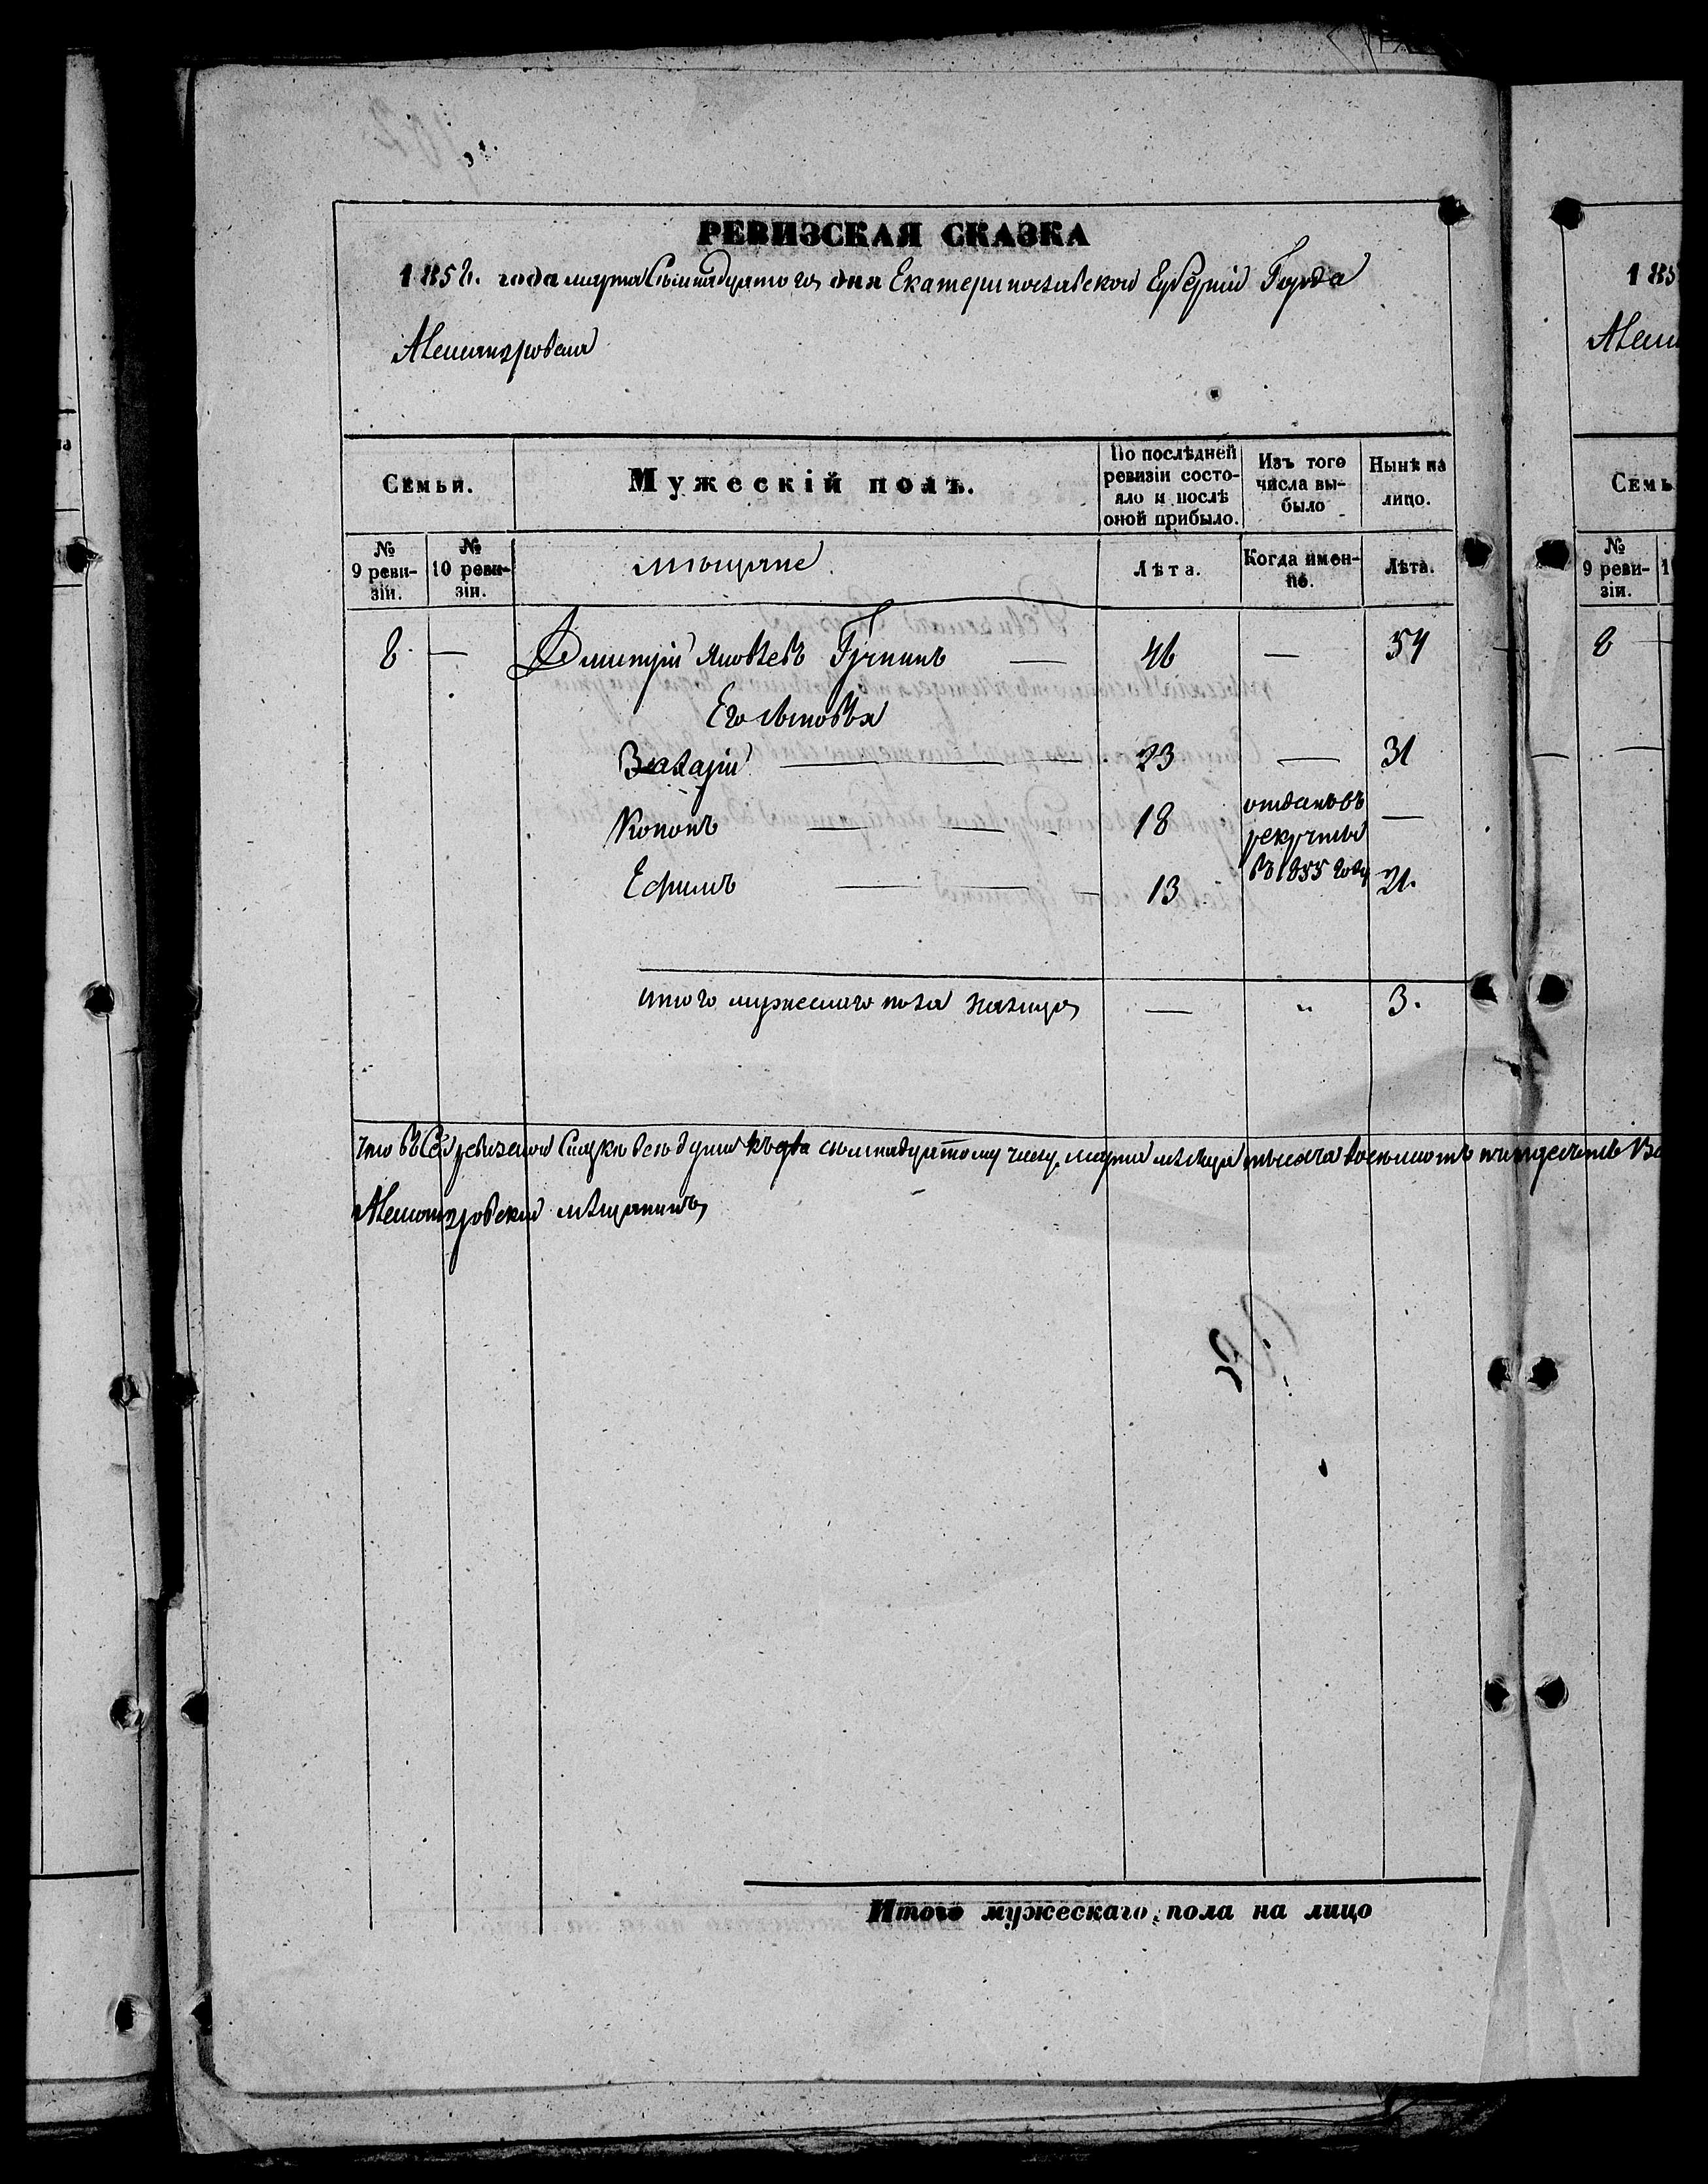 РЕВИЗСКАЯ СКАЗКА
1858. года марта Семнадцатого дня Екатеринославской Губерніи Города
Александровска
Семьи.
Мужескій полъ.
По послѣдней ревизіи состояло и послѣ оной прибыло.
Изъ того числа выбыло
Нынѣ на лицо.
№ 9 ревизіи.
№ 10 ревизіи.
мѣщане
Лѣта.
Когда именно.
Лѣта.
8. — Дмитрій Яковлевъ — 46 — 54
Его сыновья
Захарій — 23 — 31
Кононъ — 18 отданъ въ рекруты въ 1855 году —
Ефимъ — 13 21.
итого мужескаго пола налицо — " 3.
что въ Сей ревизской Сказкѣ всѣ души къ семнадцатому числу марта мѣсяца тысяча восемьсотъ пятдесятъ
Александровскій мѣщанинъ
Итого мужескаго пола на лицо
185
Семь
№ 9 ревизіи.
8